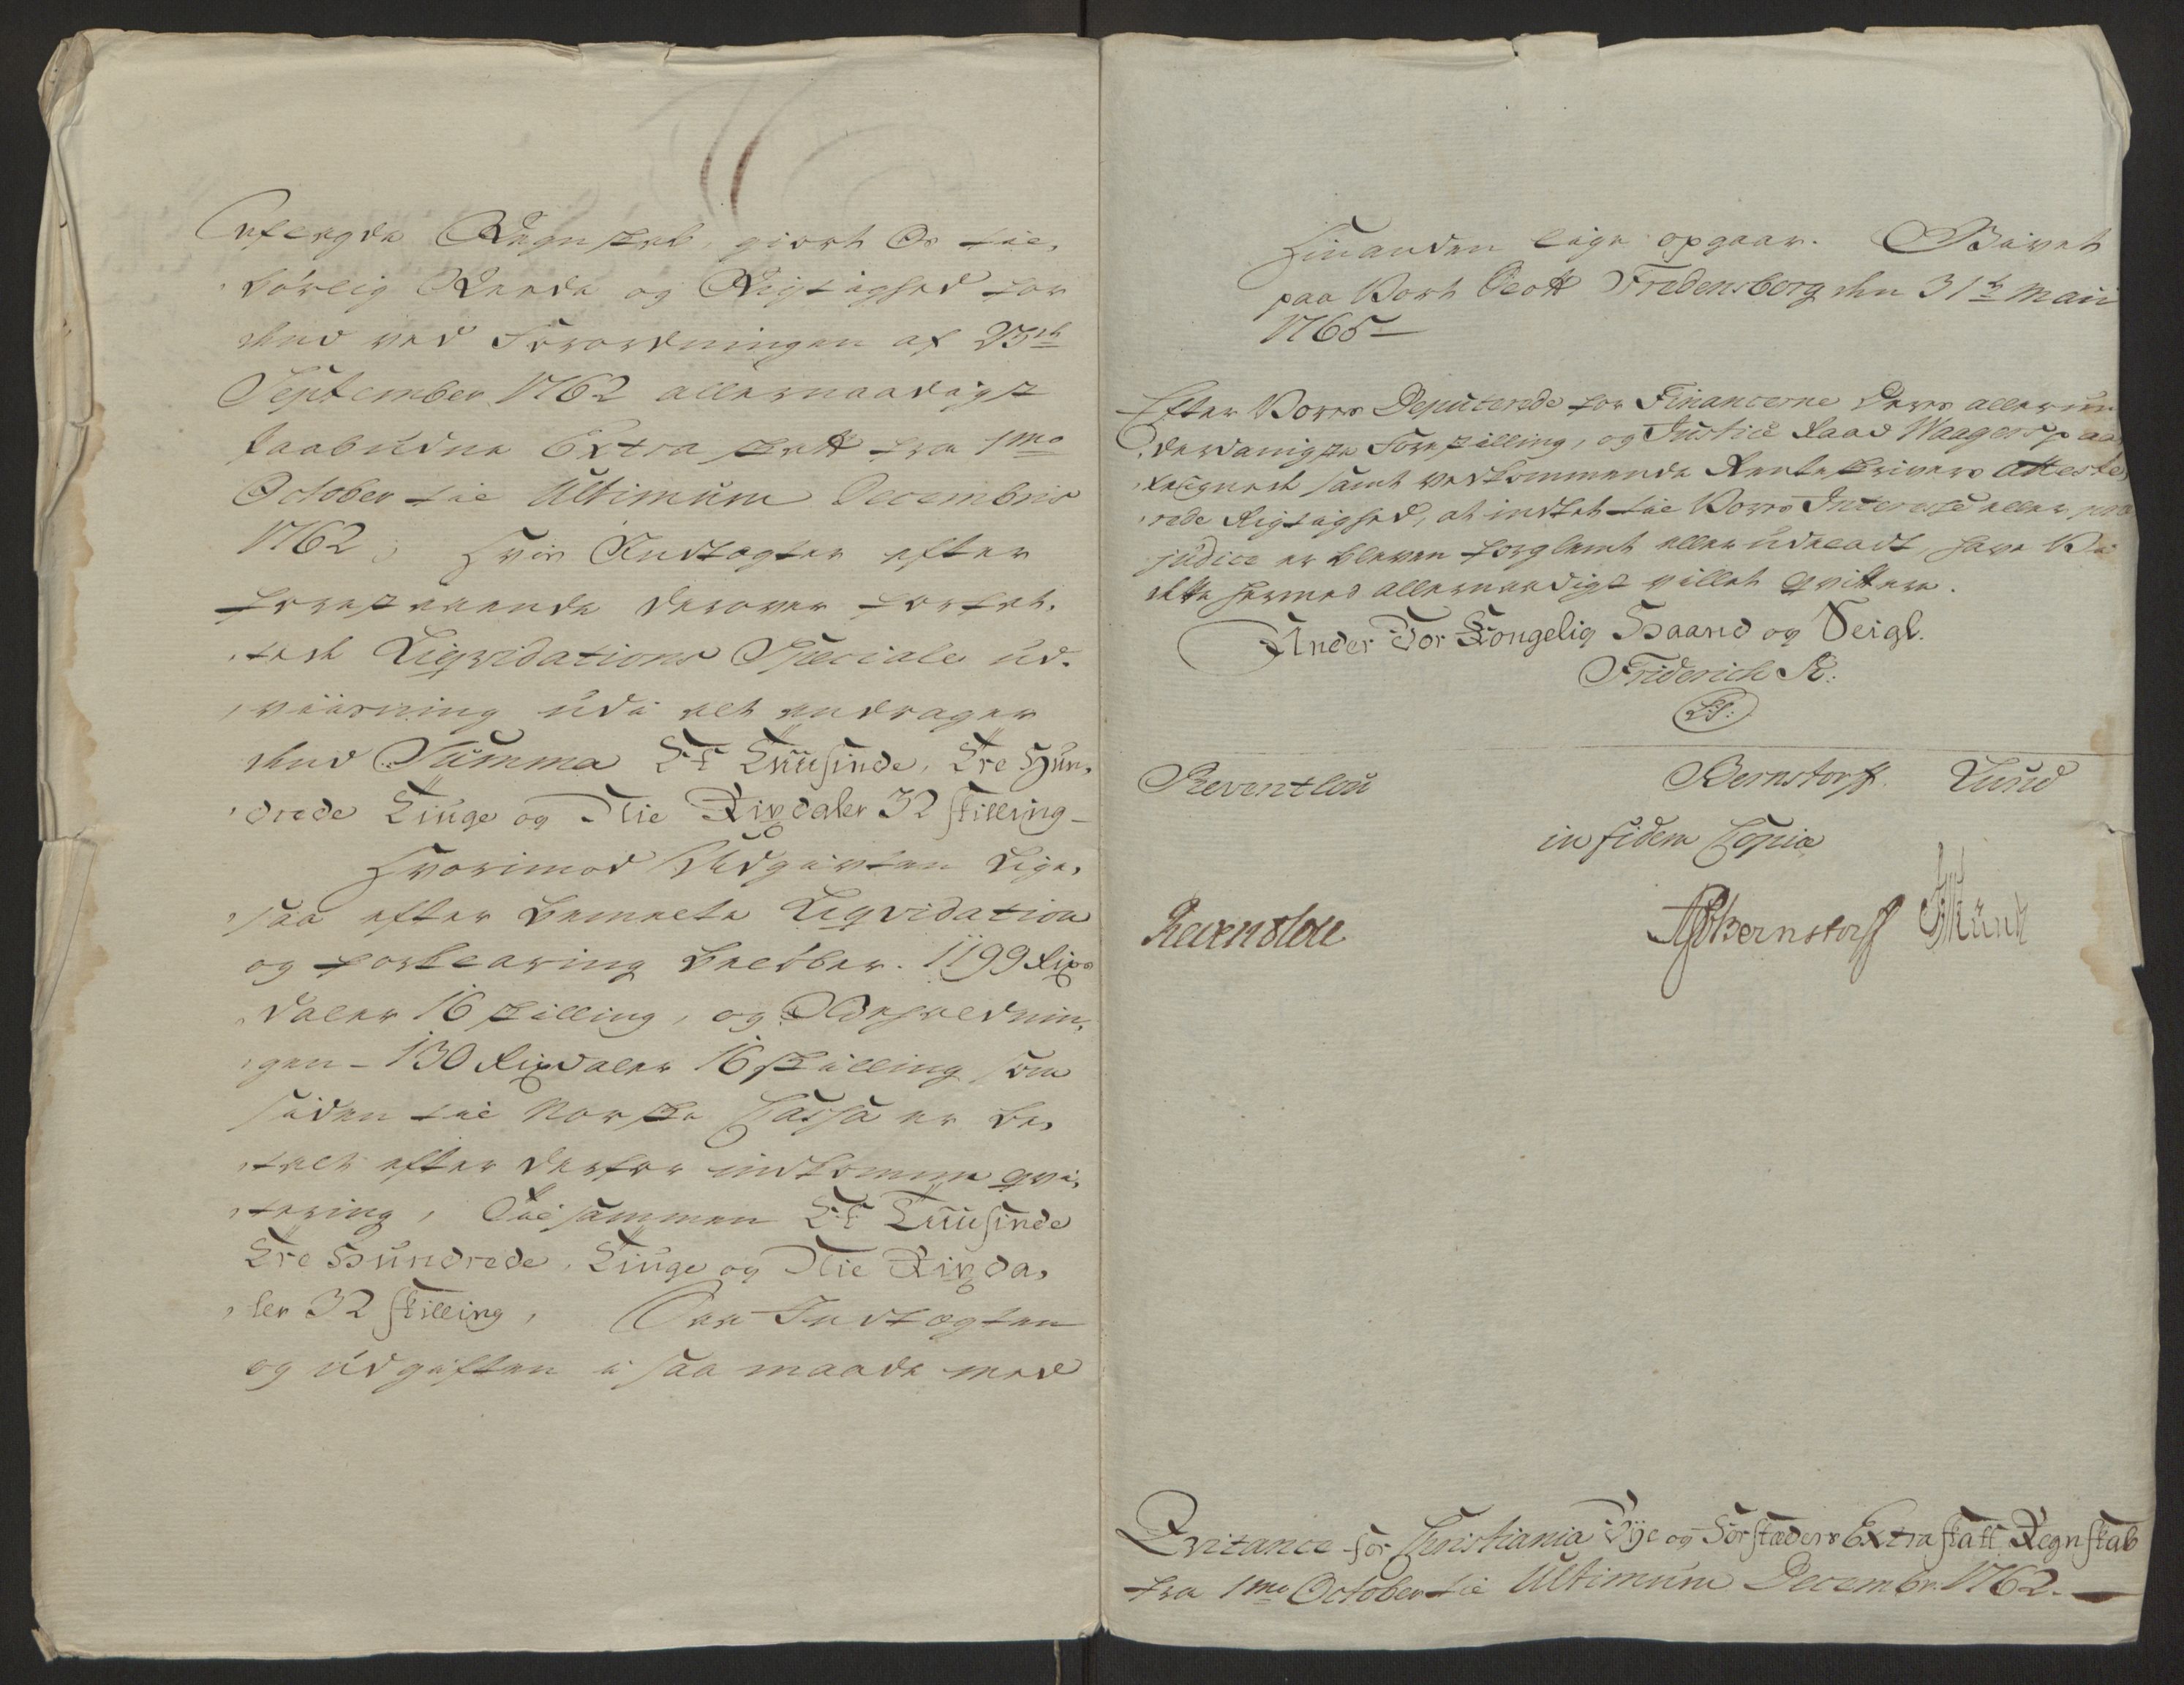 aflagde Regnskab, giort Os til,
børlig Reede og Rigtighed for
dend ved Forordningen af 23de
September 1762 allernaadigst
paabudne Extra skatt fra 1mo
October til Ultimum Decembris
1762; Hvis Indtægter efter
forestaaende derover forfat,
tede Liqvidations Speciale ud,
viisning udi alt andrager
dend Summa Et Tuusinde, Tre Hun,
drede Tiuge og Nie Rixdaler 32 skilling -
Hvorimod Udgivten Lige,
saa efter bemelte Liqvidation
og forklaring beløber. 1199 Rix,
daler 16 skilling, og Beholdnin,
gen - 130 Rixdaler 16 skilling som
siden til Norske Cassa er be,
talt efter derfor indkomne qvi,
tering, Tilsammen Et Tuusinde
Tre Hundrede, Tiuge og Nie Rixda,
ler 32 skilling, Saa Indtægten
og udgiften i saa maade med
hinanden lige opgaar. Skrevet
paa Vort Slott Fredensborg den 31te Maii
1765 -
Efter Vores Deputerede for Financerne deres allerun
derdanigste Forestilling, og Justice Raad Waagers paa
tegnede samt vedkommende Renteskrivers atteste
rede Rigtighed, at indtet til Vores Interesse eller præ
judice er bleven forglemt eller udeladt, have Vi
dette hermed allernaadigst villet qvittere.
Under Vor Kongelig Haand og Seigl.
Friderich R:
L.S.
Reventlou Bernstorff. Lund
in fidem Copia
Reventlou Bernstorff
Qvitance for Christiania Bye og Forstæders Extra skatt Regnskab
fra 1mo October til Ultimum Decembr: 1762. -